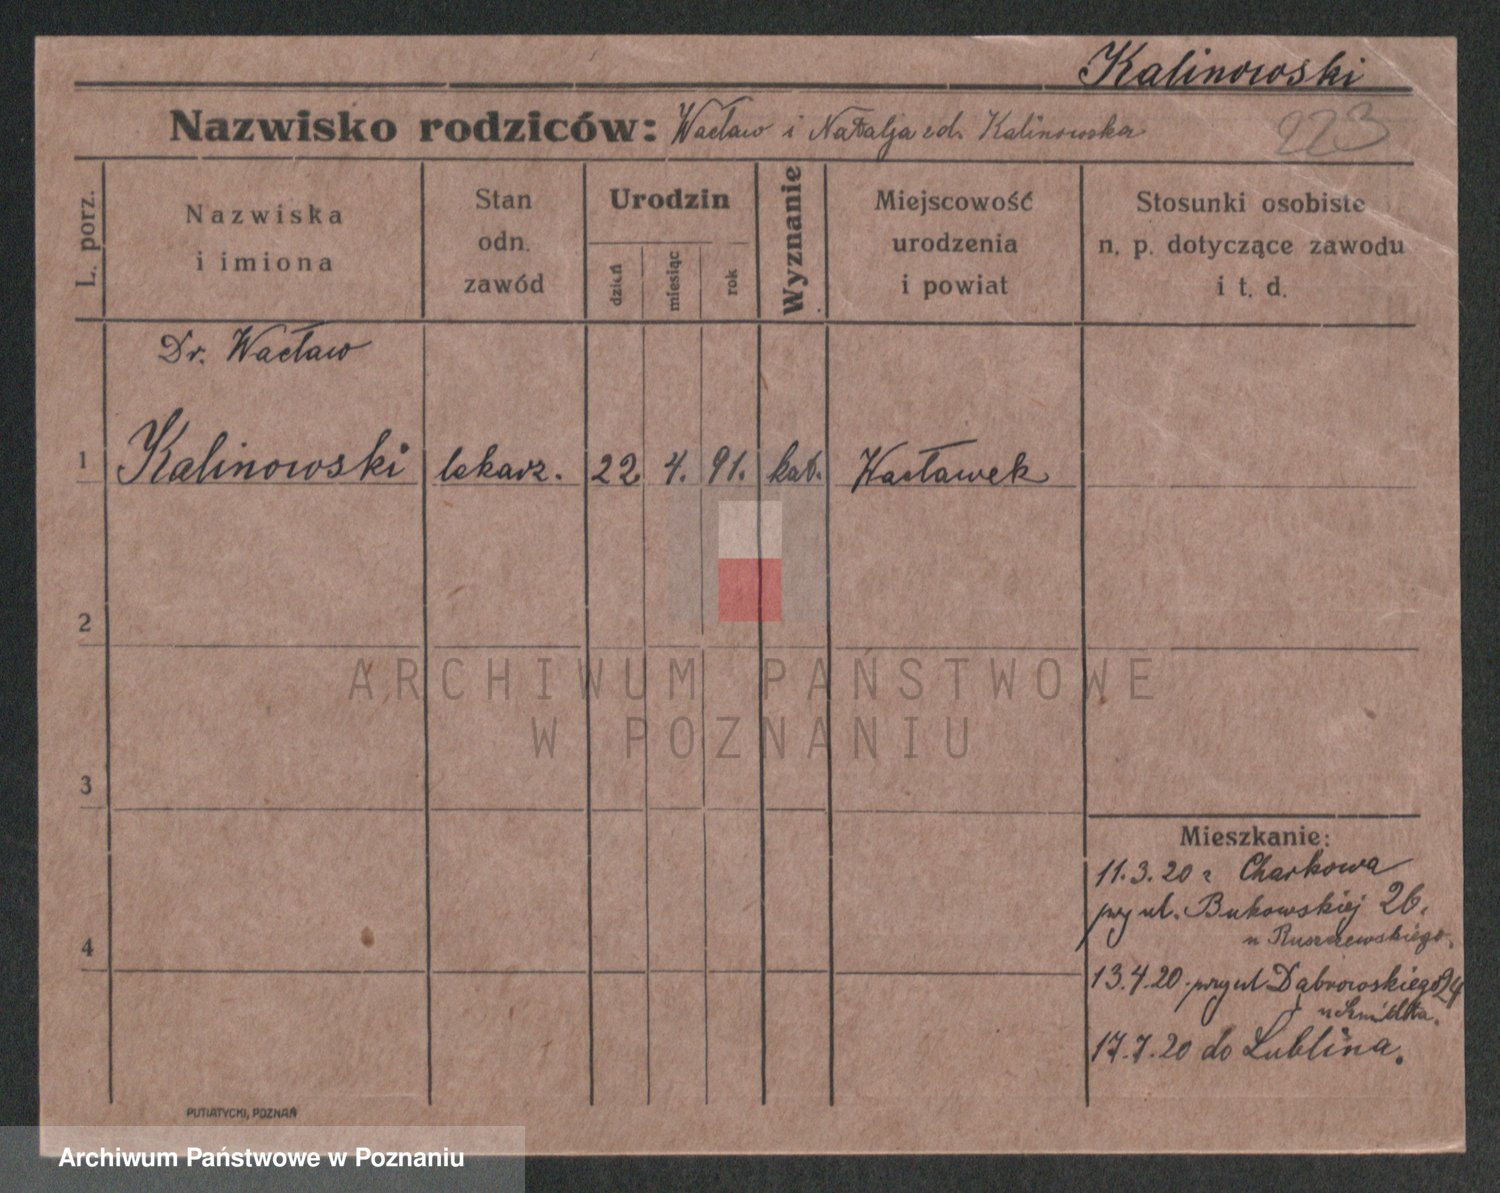 Kalinowski
Nazwisko rodziców: Wacław i Natalja zd. Kalinowska
223
L. porz.
Nazwiska i imiona
Stan odn. zawód
Urodzin
dzień
miesiąc
rok
Wyznanie
Miejscowość urodzenia i powiat
Stosunki osobiste n. p. dotyczące zawodu i t. d.
Dr. Wacław
1 Kalinowski lekarz. 22 4. 91. kat. Wacławek
2
ARCHIWUM PAŃSTWOWE
W POZNANIU
3
Mieszkanie:
11.3.20 z Charkowa
przy ul. Bukowskiej 26.
u Ruszczewskiego.
4
13.4.20. przy ul Dąbrowskiego 24
u
17.7.20 do Lublina.
PUTIATYCKI, POZNAŃ
Archiwum Państwowe w Poznaniu